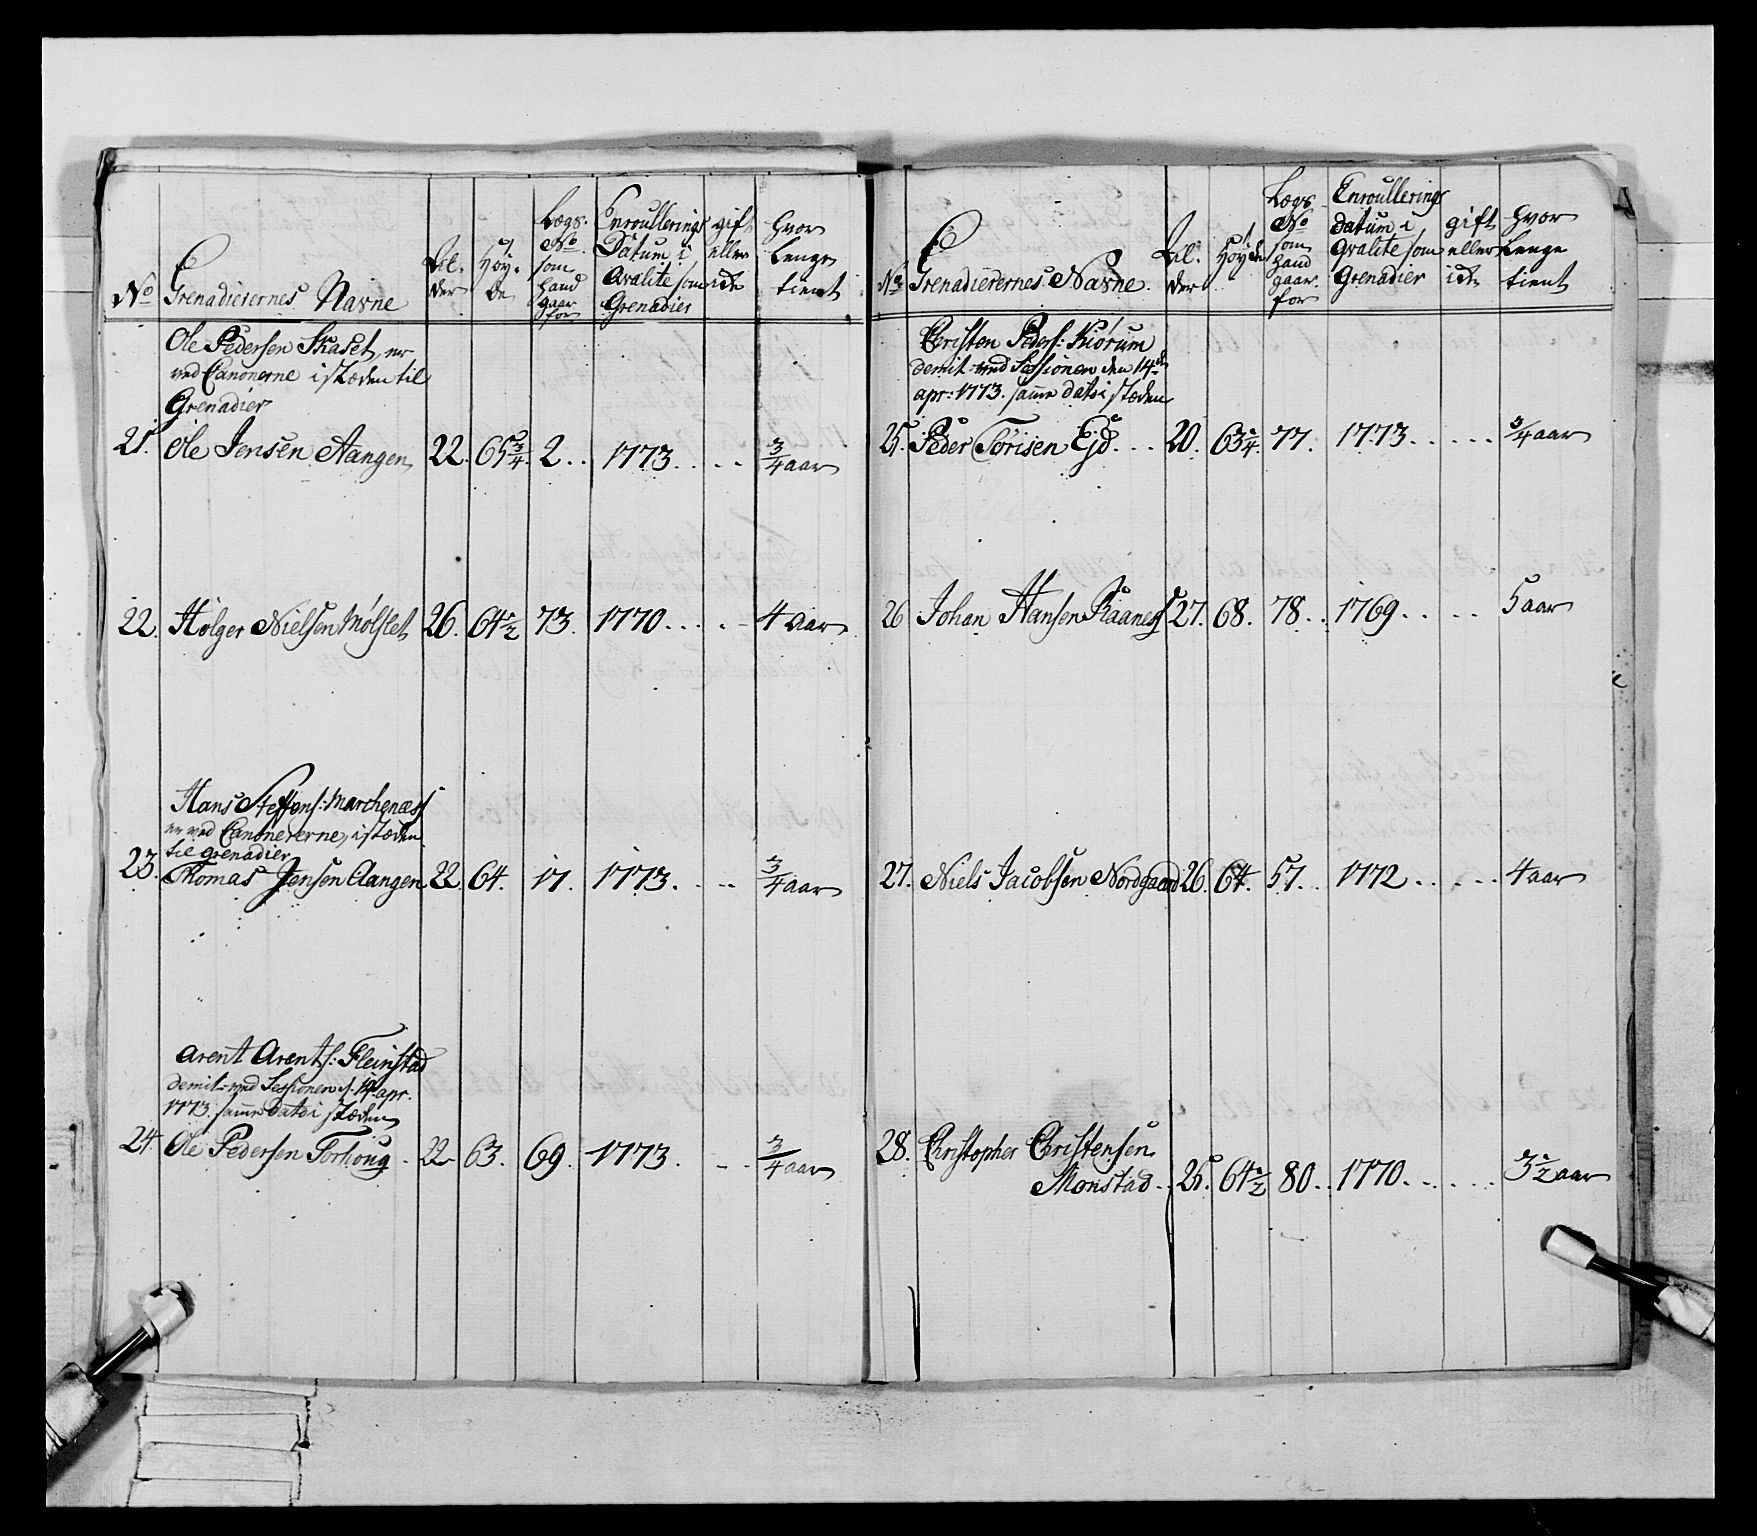 No Grenadierernes Navne Al-der Höy-de Lægs No som hand gaar for Enroullerings Datum i Qvalite som Grenadier gift eller ide hvor Lenge tient
Ole Pedersen Skaset, er
ved Canonerne i stæden til
Grenadier
21. Ole Jensen Aangen 22. 65 3/4. 2.. 1773.... 3/4 aar
22. Holger Nielsen Mølslet 26. 64 1/2 73. 1770.... 4 aar.
Hans Steffens: Marchenæs
er ved Canonererne, i stæden
til grenadier
23. Thomas Jensen Aangen 22. 64. 17. 1773... 3/4 aar
Arent Arents: Fleinstad
demit: ved Sessionen d. 14 apr.
1773. samme Dato i stæden
24. Ole Pedersen Forhoug. 22 63. 69. 1773... 3/4 aar
No Grenadierernes Navne. Al-der Höyde Lægs No som hand gaar for Enroullerings datum i Qvalite som Grenadier gift eller ide hvor Lenge tient
Christen Peders: Kiørum
demit ved Sessionen den 14de
apr: 1773. samme dato i stæden
25. Peder Torisen Ejd... 20. 63 1/4. 77. 1773..... 3/4 aar
26 Johan Hansen Raaness 27. 68. 78.. 1769.... 5 aar
27. Niels Jacobsen Nordgaard 26. 64. 57.. 1772..... 4 aar
28. Christopher Christensen
Monstad.. 25. 64 1/2 80.. 1770..... 3 1/2 aar